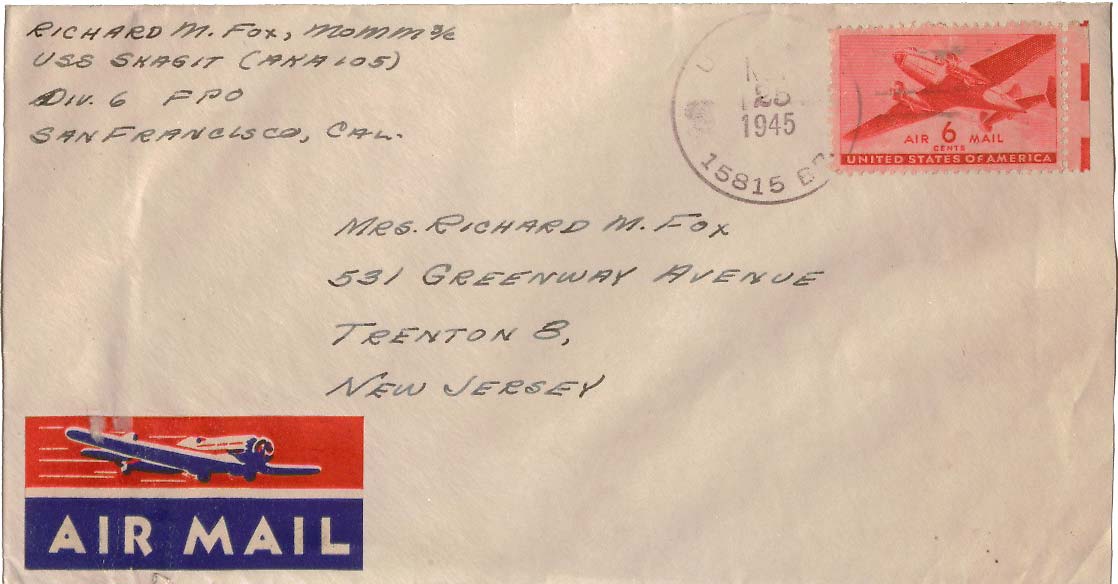 RICHARD M. FOX, MOMM 3/c
USS SKAGIT (AKA105)
DIV. 6 FPO
SAN FRANCISCO, CAL.
25
1945
15815
AIR 6 MAIL
CENTS
UNITED STATES OF AMERICA
MRS. RICHARD M. FOX
531 GREENWAY AVENUE
TRENTON 8,
NEW JERSEY
AIR MAIL